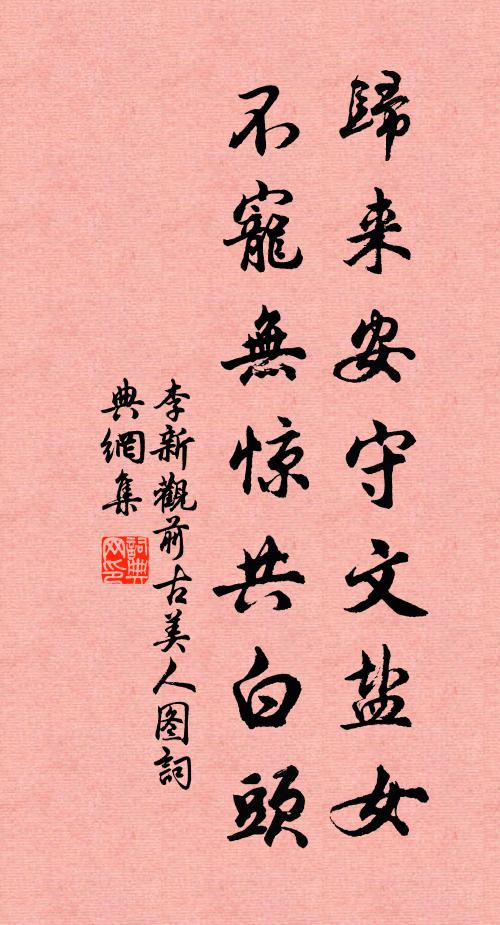 歸来安守文盐女
不寵無惊共白頭
李新觀前古美人图詞
典網集
詞典网印